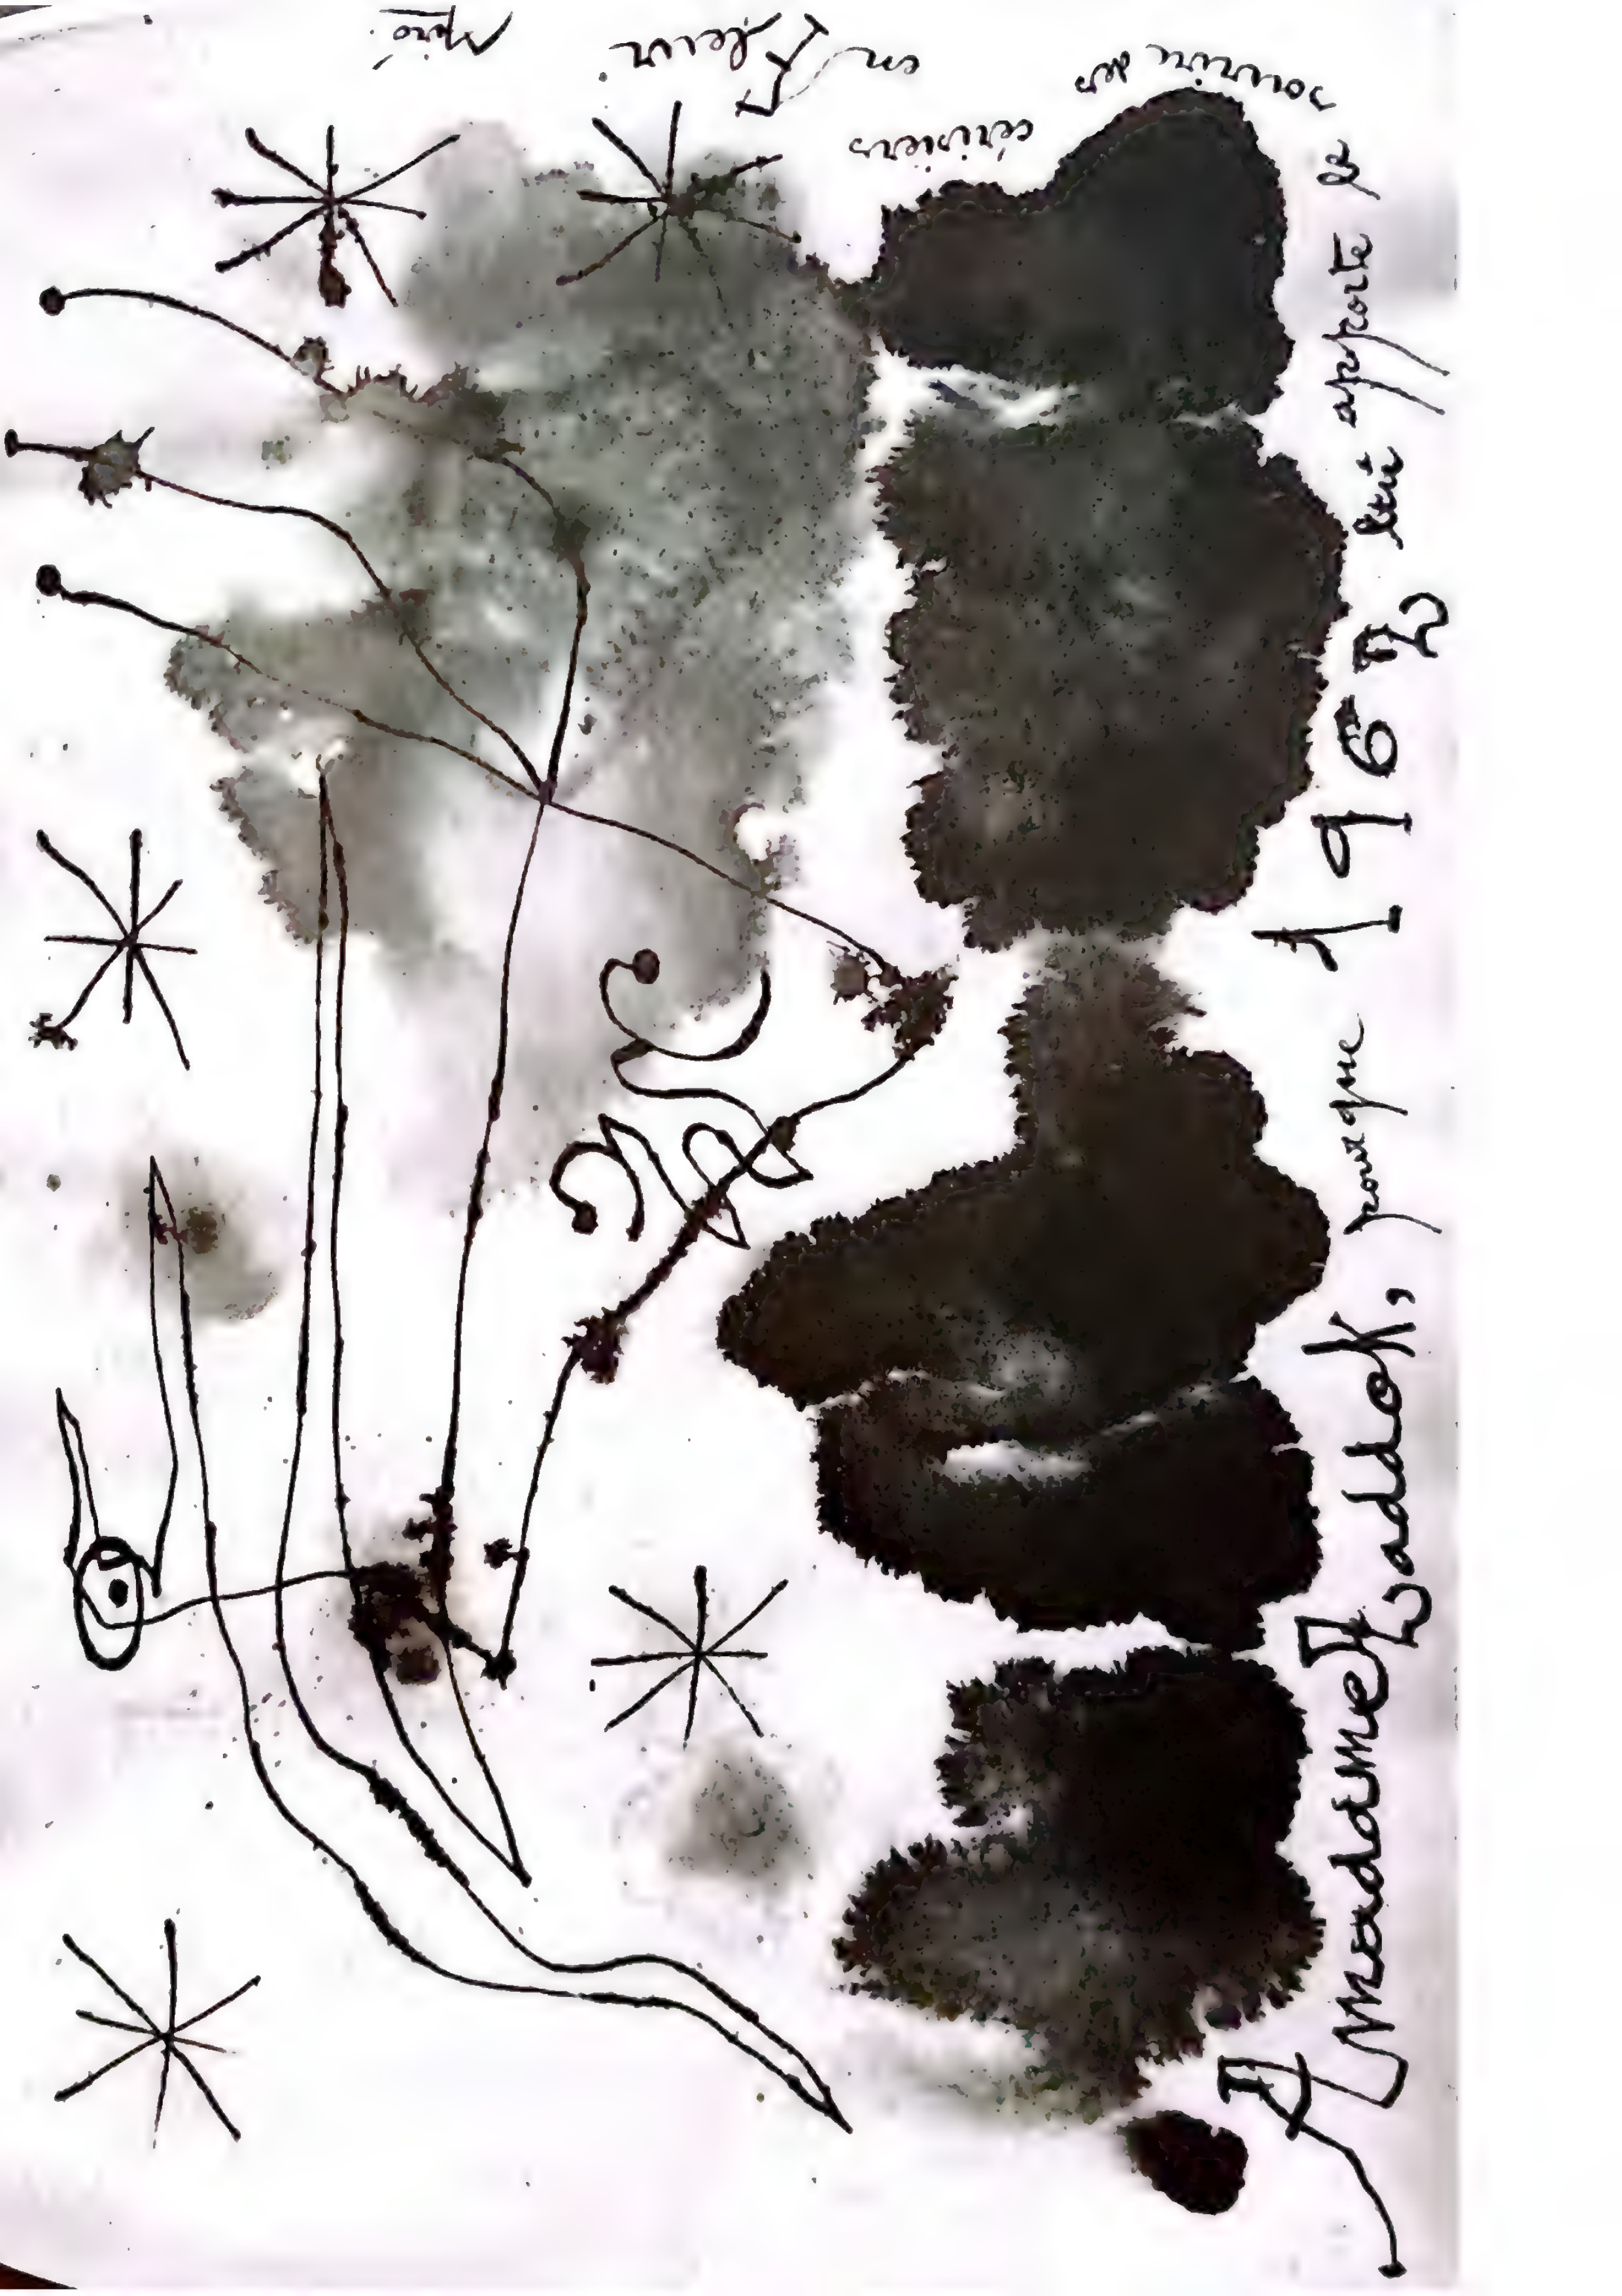 A madame Zaddok, pourque 1962 lui apporte le
sourire des
cérisiers
en Fleur
Miró.